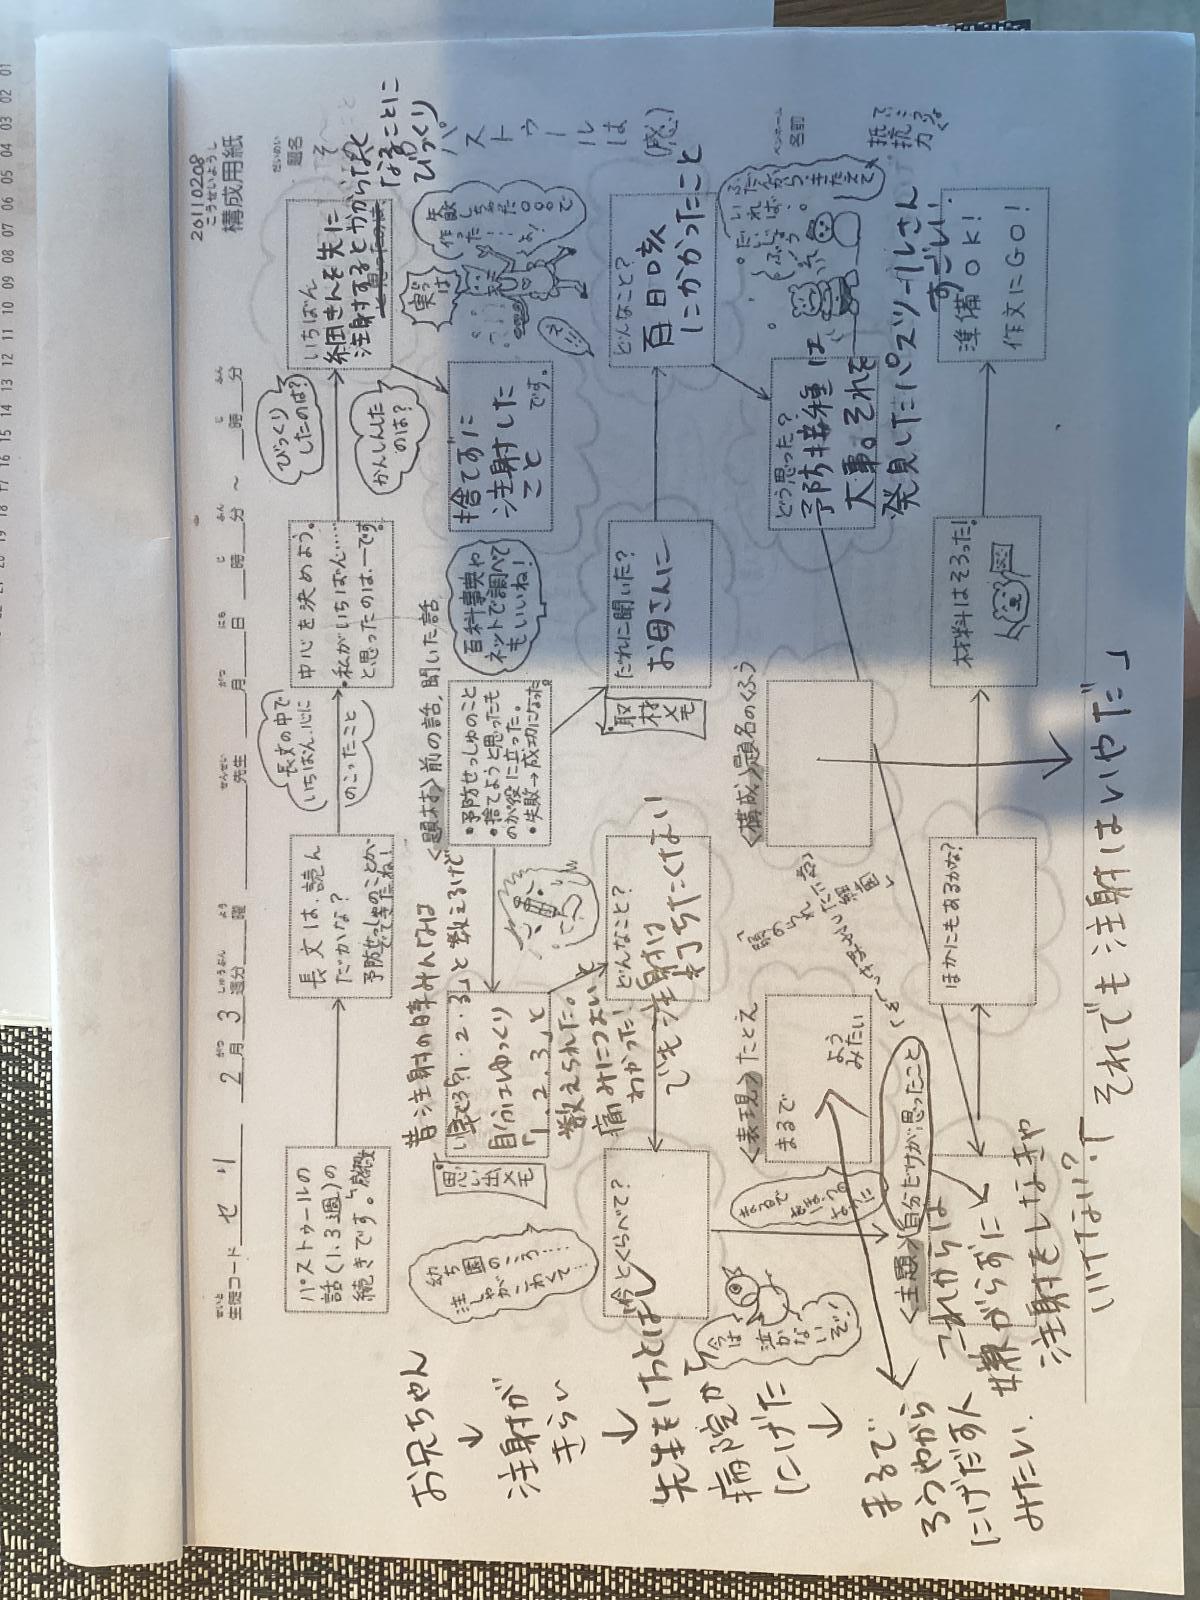 26110208
こうせいようし
構成用紙
せいと
生徒コード セリ
2月3週分
がつ
しゅうぶん
よう
曜
せんせい
先生
がつ
月
にち
日
じ
時
ふん
分
～
じ
時
ふん
分
だいめい
題名
ペンネーム
名前
パストゥールの
話(1.3週)の
続きです。感謝
長文は、読ん
だかな?
予防せっしゅのことが、
でてきたね!
長文の中で
いちばん、心に
のこったこと
中心を決めよう。
・私がいちばん……
と思ったのは、ーです。
びっくり
したのは?
かんしんした
のは?
いちばん
細菌きんを先に
注射するとかからなく
なることに
びっくり
パストゥールは
捨てずに
注射した
こと
です。
実は
失敗作
〈題材〉前の話、聞いた話
・予防せっしゅのこと
・捨てようと思ったも
のが役に立った。
・失敗→成功になった。
百科事典や
ネットで調べて
もいいね!
取材メモ
だれに聞いた?
お母さんに
どんなこと?
百日咳
にかかったこと
(感)
どう思った?
予防接種は
大事。それを
発見したパスツールさん
すごい!
抵抗力
昔注射の時みんなは
「1・2・3」と数えるけど
自分はゆっくり
「1、2、3」と
数えられた。
痛みにつよいと
わかった!
思い出メモ
幼ち園のころ…
注しゃが
こわくて…
どんなこと?
でも注射は
打ちたくない
今とくらべて?
今は
泣かないぞ!
〈表現〉たとえ
まるで
よう
みたい
〈構成〉題名のくふう
〈主題〉自分だけが思ったこと
これからは
嫌がらずに
注射をしなきゃ
いけない?
「それでも注射はいやだ」
ほかにもあるかな?
材料はそろった!
準備OK!
作文にGO!
お兄ちゃん
↓
注射が
きらい
↓
先生をけとばし
病院から
にげた
↓
まるで
ろうやから
にげだす人
みたい、